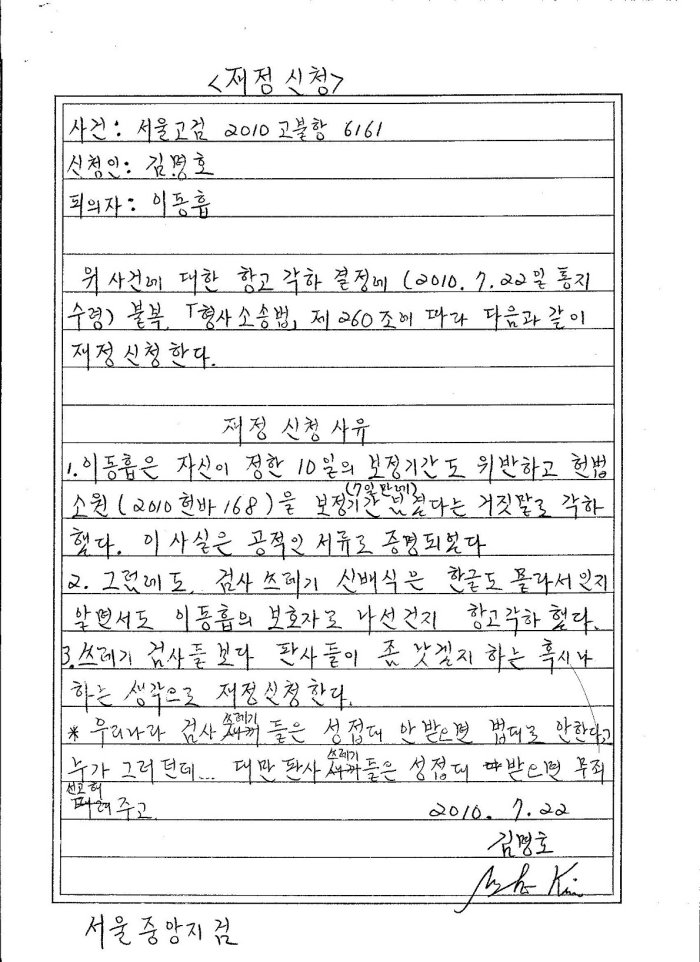 <재정 신청>
사건: 서울고검 2010 고불항 6161
신청인: 김명호
피의자: 이동흡
위 사건에 대한 항고 각하 결정에 (2010. 7. 22일 통지
수령) 불복, 「형사소송법」 제 260조에 따라 다음과 같이
재정 신청 한다.
재정 신청 사유
1. 이동흡은 자신이 정한 10일의 보정기간도 위반하고 헌법
소원 (2010 헌바 168)을 보정기간(7일만에) 넘겼다는 거짓말로 각하
했다. 이 사실은 공적인 서류로 증명되었다
2. 그럼에도, 검사 쓰레기 신배식은 한글도 몰라서인지
알면서도 이동흡의 보호자로 나선건지 항고각하 했다.
3. 쓰레기 검사들보다 판사들이 좀 낫겠지 하는 혹시나
하는 생각으로 재정신청한다.
* 우리나라 검사 쓰레기 들은 성접대 안 받으면 법대로 안한다고
누가 그러던데... 대만 판사 쓰레기 들은 성접대 받으면 무죄
선고해 주고
2010. 7. 22
김명호
Kim
서울중앙지검